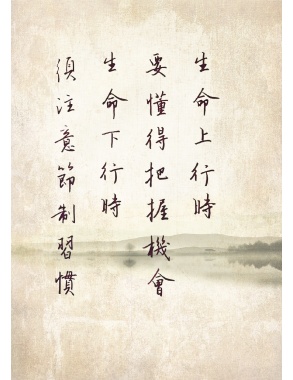 生命上行時
要懂得把握機會
生命下行時
須注意節制習慣